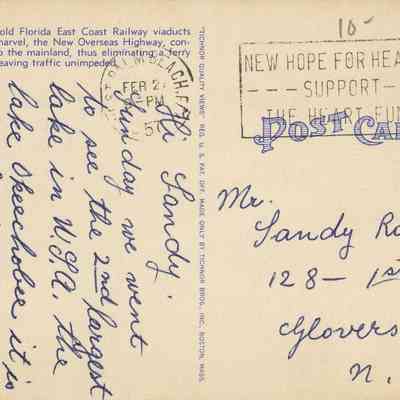 old Florida East Coast Railway viaducts
marvel, the New Overseas Highway, con-
to the mainland, thus eliminating a ferry
eaving traffic unimpeded.
PALM BEACH, FLA.
FEB 2
PM
Hi Sandy.
Sunday we went
to see the 2nd largest
lake in U.S.A. the
lake Okeechobee it is
"TICHNOR QUALITY VIEWS" REG. U. S. PAT. OFF. MADE ONLY BY TICHNOR BROS., INC., BOSTON, MASS.
10-
NEW HOPE FOR HEA
SUPPORT
THE HEART FUN
POST CA
Mr.
Sandy Ro
128 - 1st
Glovers
N.